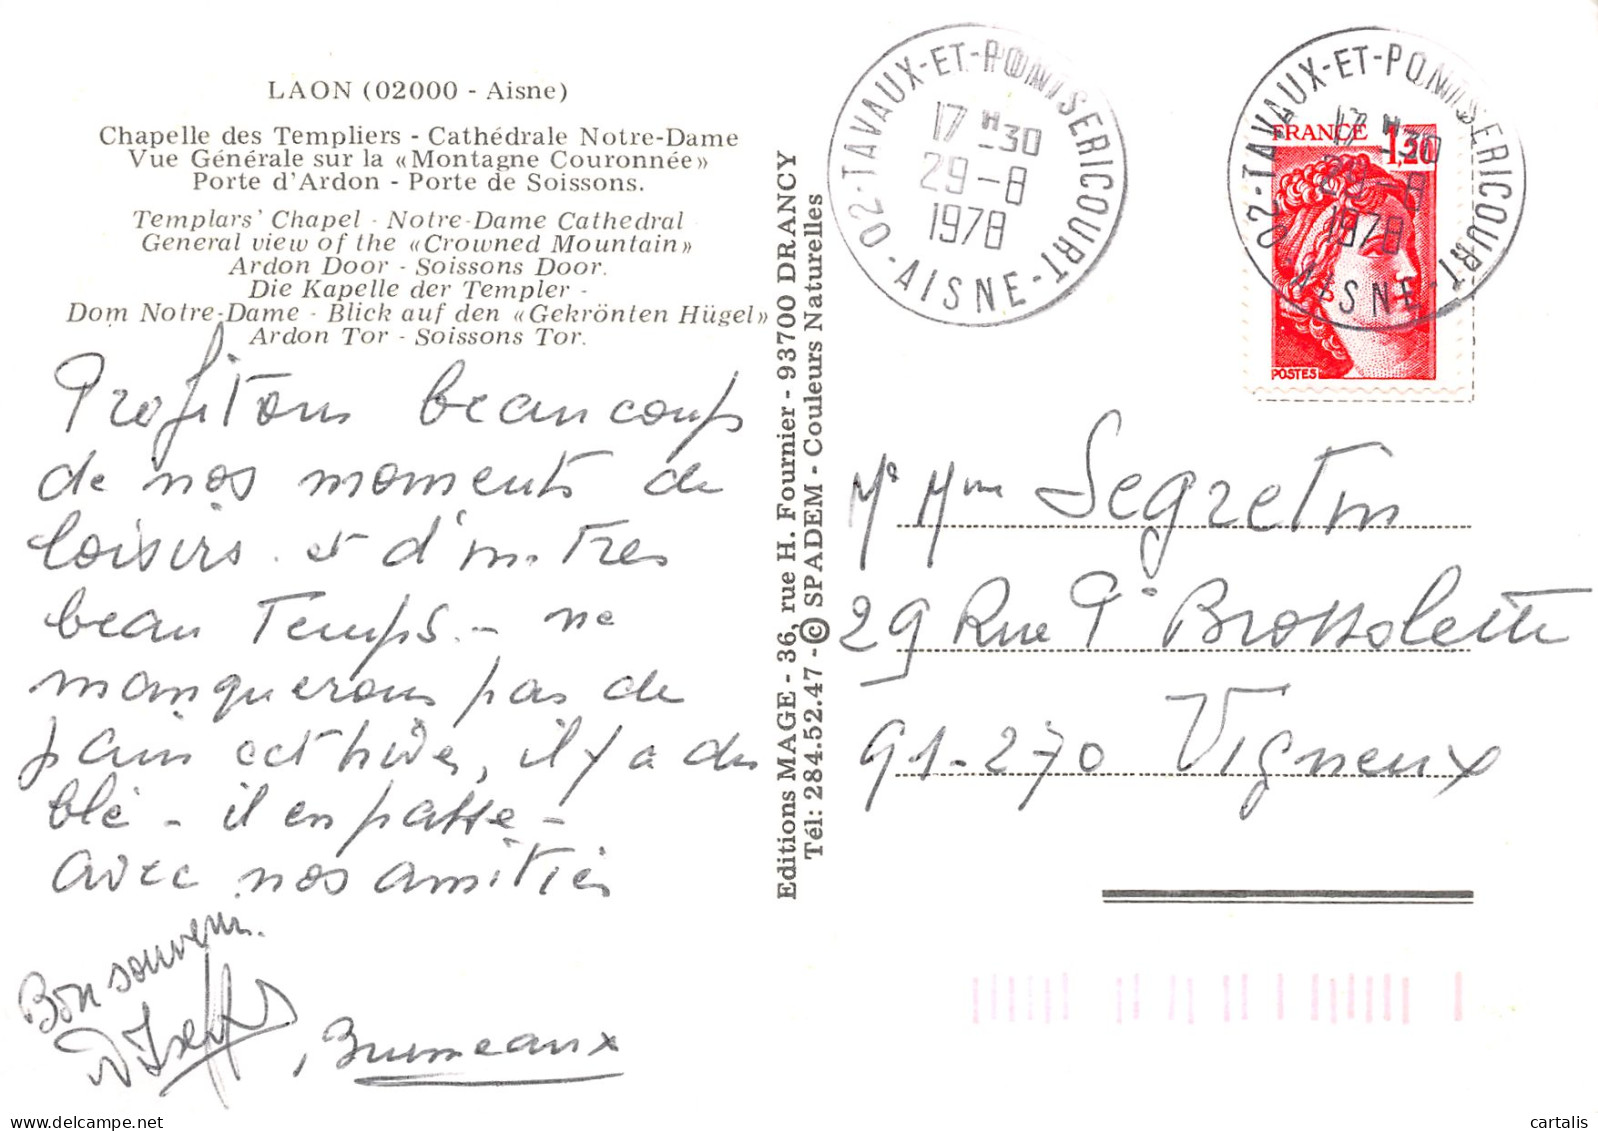 LAON (02000 - Aisne)
Chapelle des Templiers - Cathédrale Notre-Dame
Vue Générale sur la «Montagne Couronnée»
Porte d'Ardon - Porte de Soissons.
Templars' Chapel - Notre-Dame Cathedral
General view of the «Crowned Mountain»
Ardon Door - Soissons Door.
Die Kapelle der Templer -
Dom Notre-Dame - Blick auf den «Gekrönten Hügel»
Ardon Tor - Soissons Tor.
Profitons beaucoup
de nos moments de
loisirs. et d'un tres
beau Temps. - ne
manquerons pas de
pain cet hiver, il y a du
blé - il en passe -
avec nos amitiés
Bon souvenir.
, Brumeaux
Editions MAGE - 36, rue H. Fournier - 93700 DRANCY
Tél: 284.52.47 - © SPADEM - Couleurs Naturelles
02-TAVAUX-ET-PONTSERICOURT-AISNE-
17 H -30
29-8
1978
02-TAVAUX-ET-PONTSERICOURT-AISNE-
17 H -30
29-8
1978
FRANCE 1,20
POSTES
Mr Mme Segretin
29 Rue P. Brossolette
91-270 Vigneux
cartalis